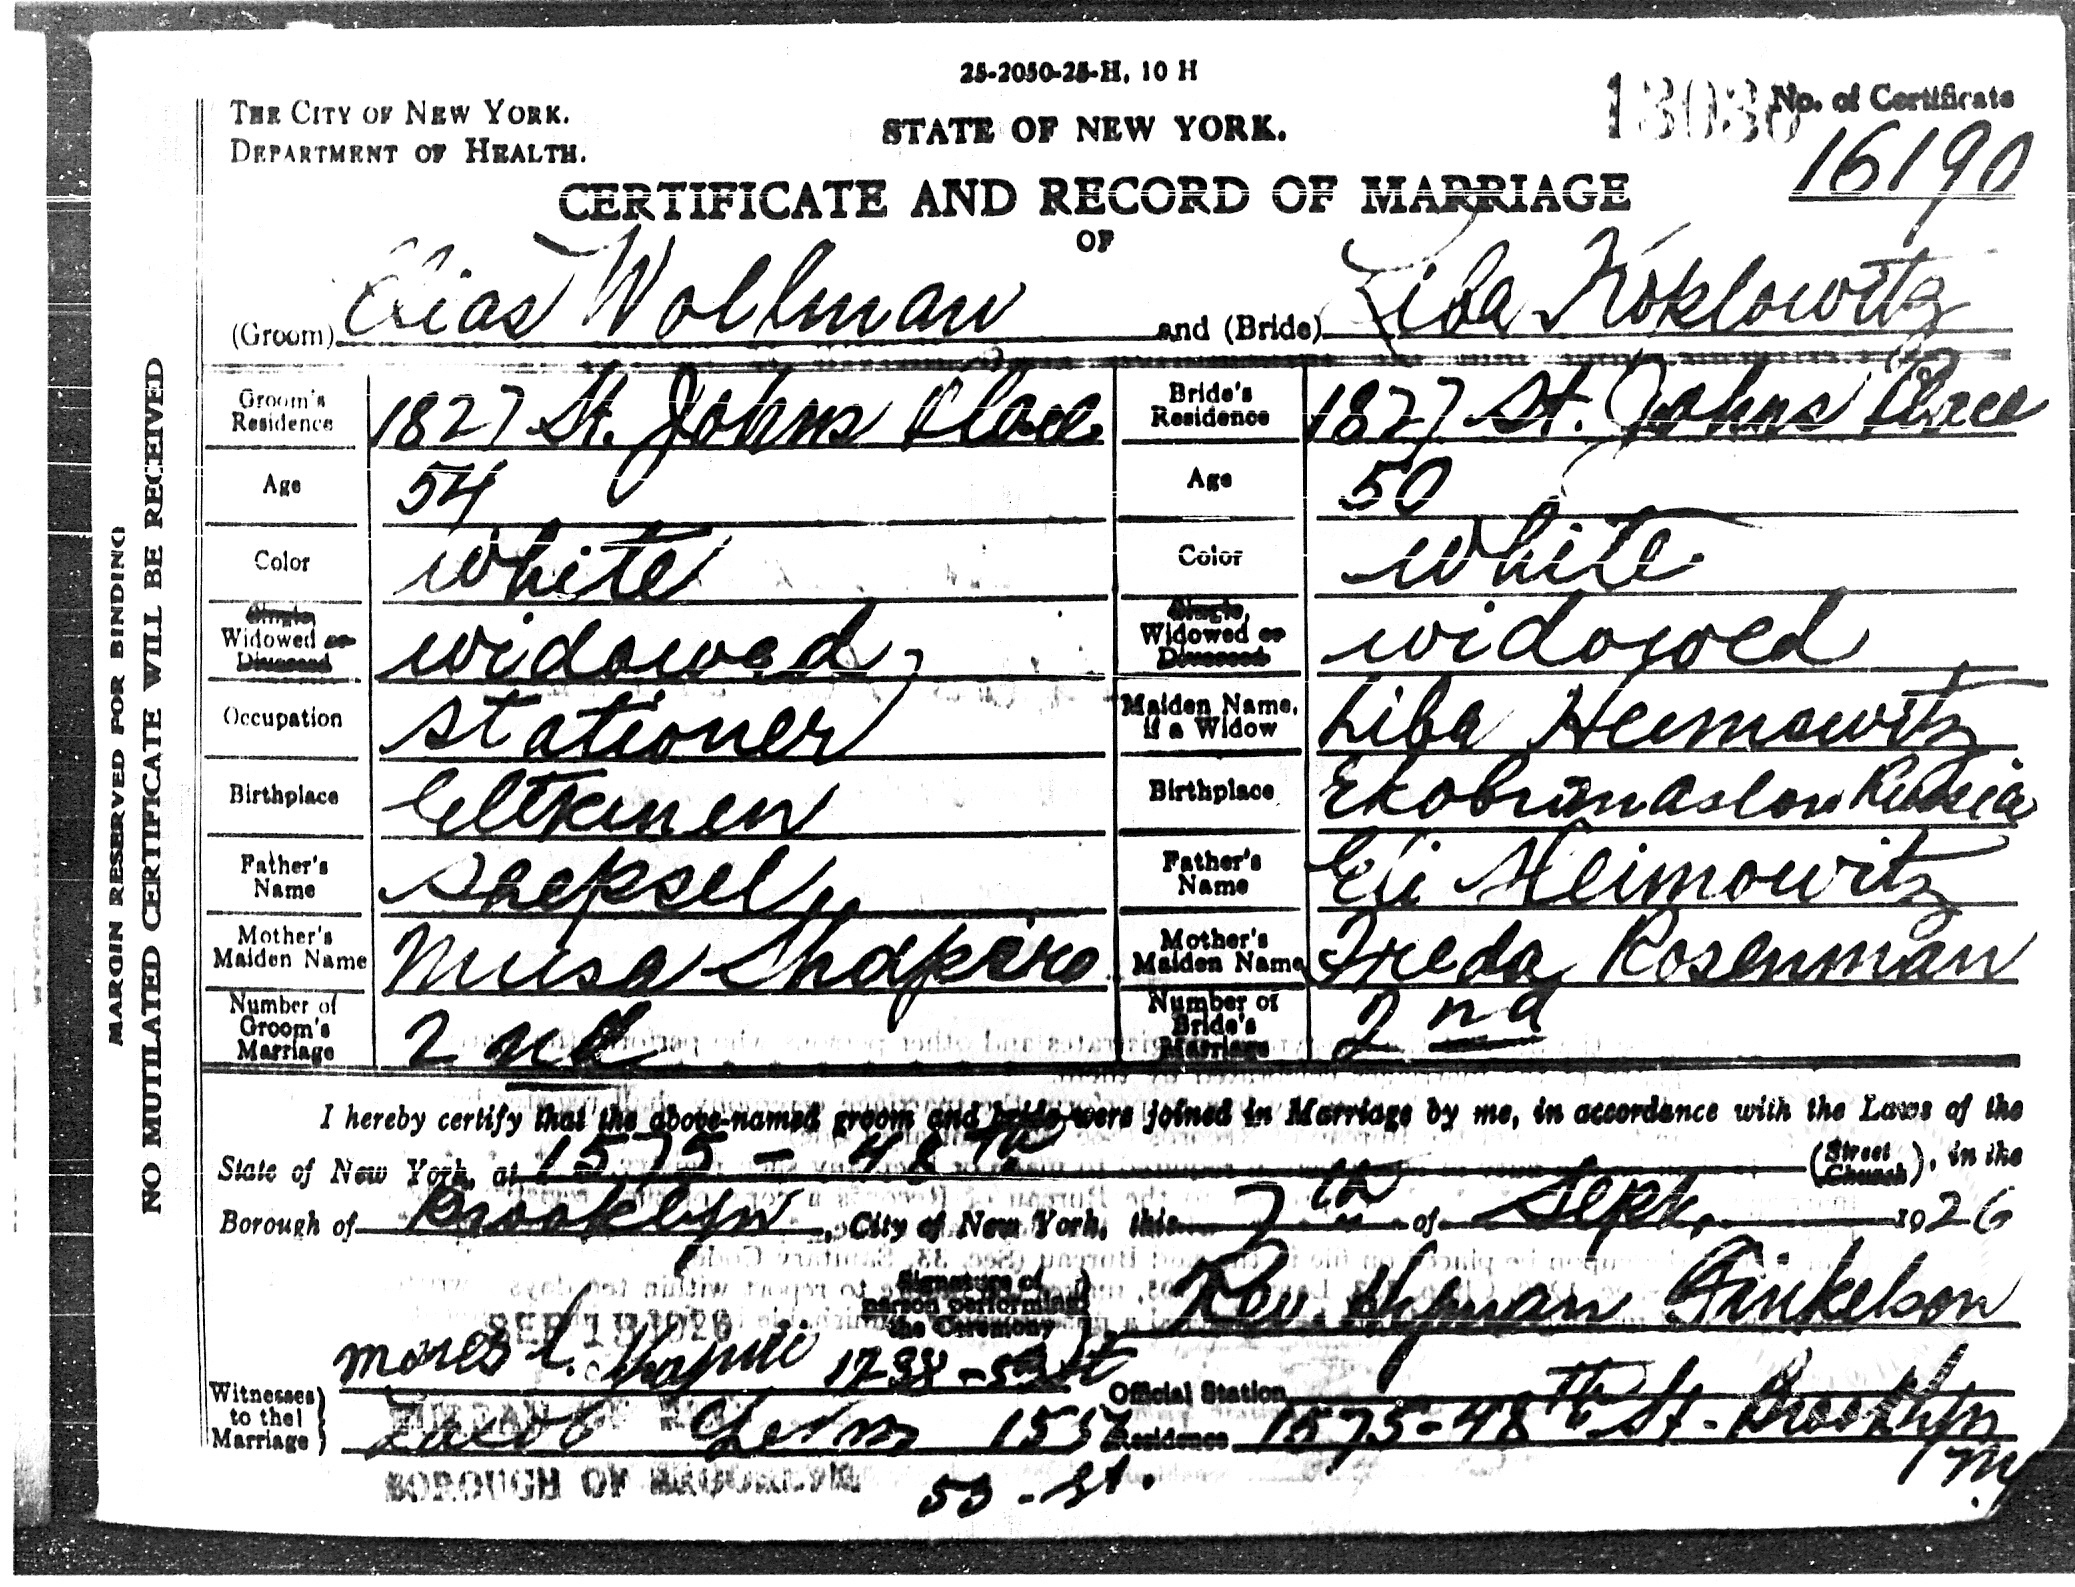 25-2050-25-H, 10 H
THE CITY OF NEW YORK.
DEPARTMENT OF HEALTH.
STATE OF NEW YORK.
No. of Certificate
16190
CERTIFICATE AND RECORD OF MARRIAGE
OF
(Groom) Elias Wollman and (Bride) Liba Koklowitz
Groom's Residence 1827 St. Johns Place Bride's Residence 1827 St. Johns Place
Age 54 Age 50
Color white Color white
Single, Widowed or Divorced widowed Single, Widowed or Divorced widowed
Occupation stationer Maiden Name, if a Widow Liba Heimowitz
Birthplace Birthplace Russia
Father's Name Shepsel Father's Name Eli Heimowitz
Mother's Maiden Name Musa Shapiro Mother's Maiden Name Freda Rosenman
Number of Groom's Marriage 2nd Number of Bride's Marriage 2nd
I hereby certify that the above-named groom and bride were joined in Marriage by me, in accordance with the Laws of the
State of New York, at 1575-48th (Street Church), in the
Borough of Brooklyn, City of New York, this 7th of Sept. 1926
Signature of person performing the Ceremony Rev. Hyman Finkelson
Witnesses to the Marriage Moses L.
Jacob
53-St.
Official Station
Residence 1575-48th St. Brooklyn
NY
BOROUGH OF BROOKLYN
MARGIN RESERVED FOR BINDING
NO MUTILATED CERTIFICATE WILL BE RECEIVED